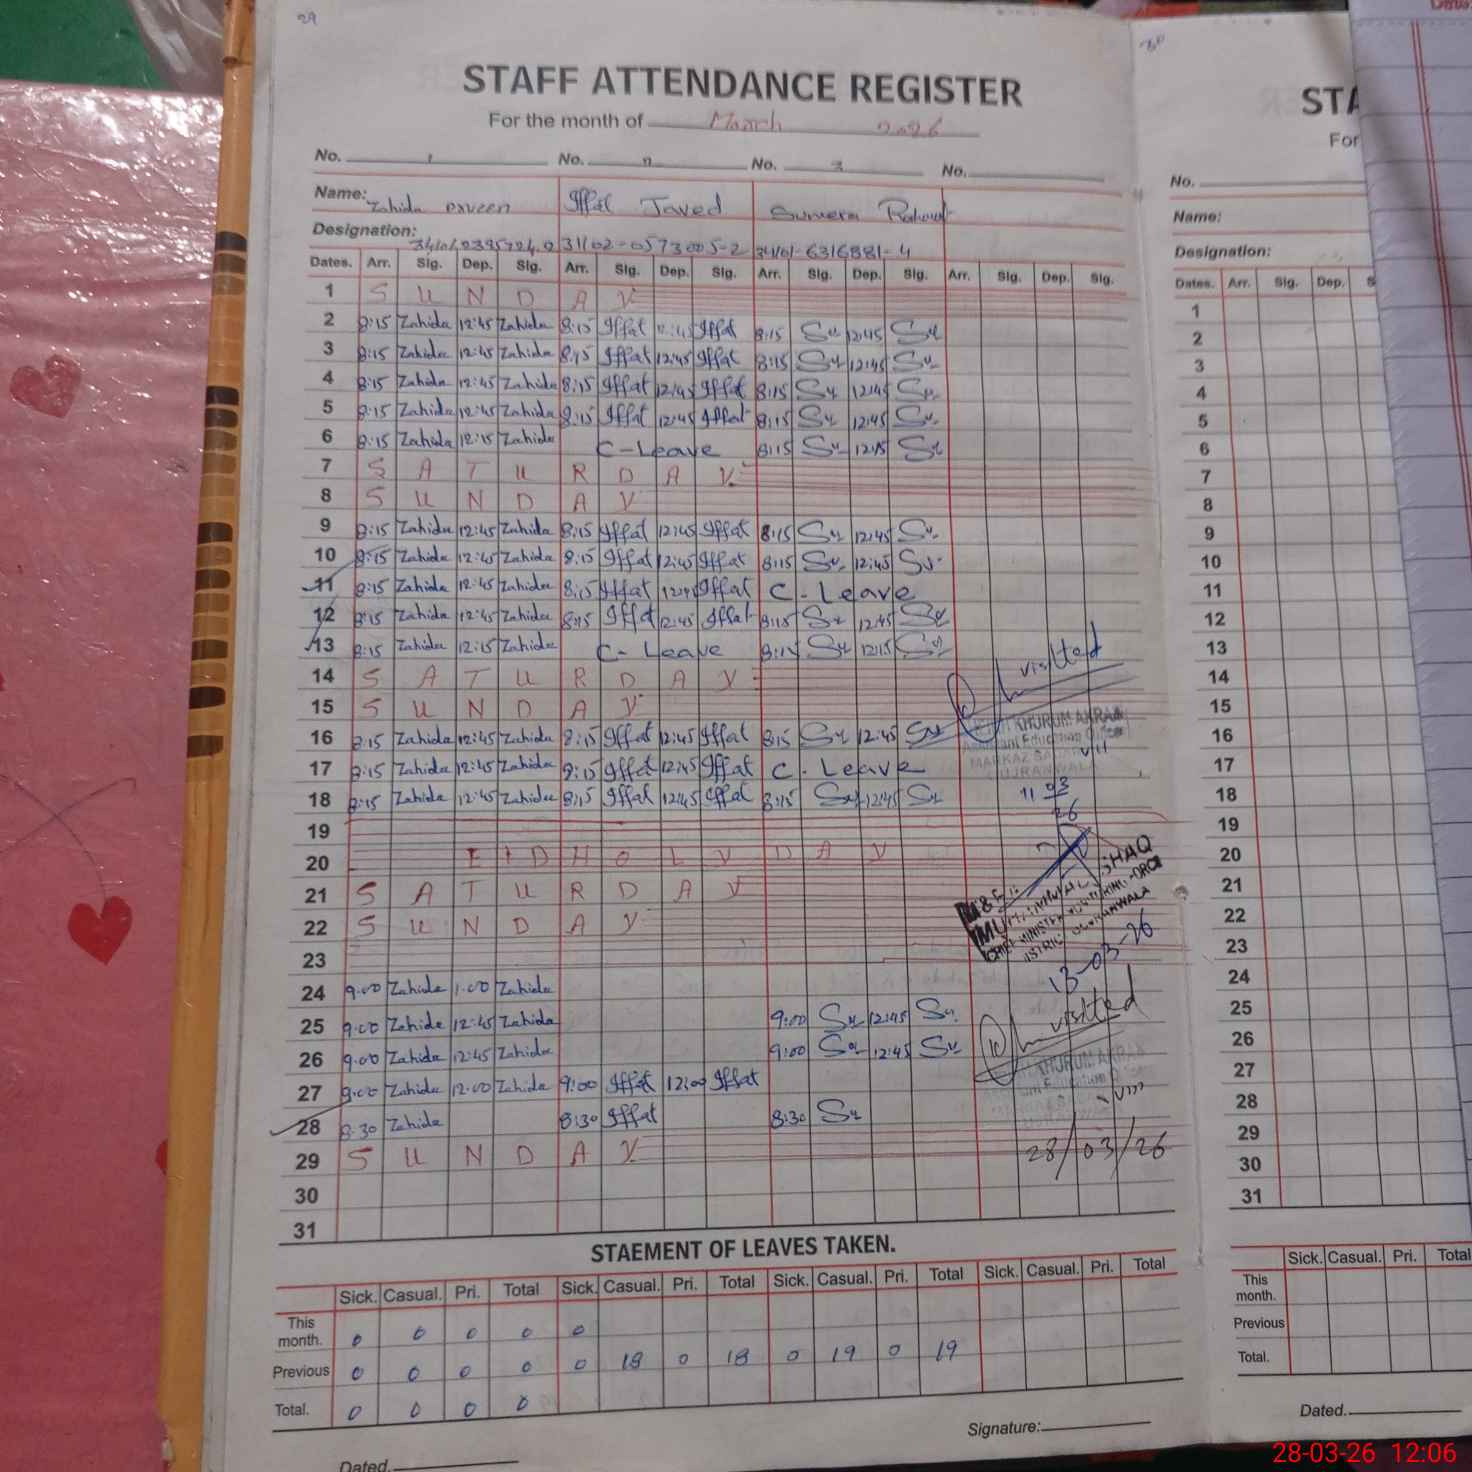 29
STAFF ATTENDANCE REGISTER
For the month of March 2026
No. 1 No. 2 No. 3 No.
Name: Zahida Iffat Javed Sumera
Designation: 31102-0573005-2
Dates. Arr. Sig. Dep. Sig. Arr. Sig. Dep. Sig. Arr. Sig. Dep. Sig. Arr. Sig. Dep. Sig.
1 S U N D A Y
2 8:15 Zahida 12:45 Zahida 8:15 Iffat 12:45 Iffat 8:15 Su 12:45 Su
3 8:15 Zahida 12:45 Zahida 8:15 Iffat 12:45 Iffat 8:15 Su 12:45 Su
4 8:15 Zahida 12:45 Zahida 8:15 Iffat 12:45 Iffat 8:15 Su 12:45 Su
5 8:15 Zahida 12:45 Zahida 8:15 Iffat 12:45 Iffat 8:15 Su 12:45 Su
6 8:15 Zahida 12:15 Zahida C-Leave 8:15 Su 12:15 Su
7 S A T U R D A Y
8 S U N D A Y
9 8:15 Zahida 12:45 Zahida 8:15 Iffat 12:45 Iffat 8:15 Su 12:45 Su
10 8:15 Zahida 12:45 Zahida 8:15 Iffat 12:45 Iffat 8:15 Su 12:45 Su
11 8:15 Zahida 12:45 Zahida 8:15 Iffat 12:45 Iffat C-Leave
12 8:15 Zahida 12:45 Zahida 8:15 Iffat 12:45 Iffat 8:15 Su 12:45 Su
13 8:15 Zahida 12:15 Zahida C-Leave 8:15 Su 12:15 Su
visited
14 S A T U R D A Y
15 S U N D A Y
KHURUM AKRAM
16 8:15 Zahida 12:45 Zahida 8:15 Iffat 12:45 Iffat 8:15 Su 12:45 Su
Assistant Education Officer
MARKAZ
17 8:15 Zahida 12:45 Zahida 8:15 Iffat 12:45 Iffat C-Leave
GUJRANWALA
18 8:15 Zahida 12:45 Zahida 8:15 Iffat 12:45 Iffat 8:15 Su 12:45 Su
11 03
26
19
20 E I D H O L Y D A Y
21 S A T U R D A Y
22 S U N D A Y
23
13-03-26
24 9:00 Zahida 1:00 Zahida
visited
25 9:00 Zahida 12:45 Zahida 9:00 Su 12:45 Su
26 9:00 Zahida 12:45 Zahida 9:00 Su 12:45 Su
KHURUM AKRAM
27 9:00 Zahida 12:00 Zahida 9:00 Iffat 12:00 Iffat
28 8:30 Zahida 8:30 Iffat 8:30 Su
29 S U N D A Y
28/03/26
30
31
STAEMENT OF LEAVES TAKEN.
Sick. Casual. Pri. Total Sick. Casual. Pri. Total Sick. Casual. Pri. Total Sick. Casual. Pri. Total
This month. 0 0 0 0 0
Previous 0 0 0 0 0 18 0 18 0 19 0 19
Total. 0 0 0 0
Signature:
Dated.
30
STA
For
No.
Name:
Designation:
Dates. Arr. Sig. Dep. S
1
2
3
4
5
6
7
8
9
10
11
12
13
14
15
16
17
18
19
20
21
22
23
24
25
26
27
28
29
30
31
Sick. Casual. Pri. Total
This month.
Previous
Total.
Dated.
28-03-26 12:06